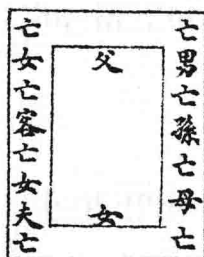 亡男亡孫亡母亡
父
女
亡女亡容亡女夫亡